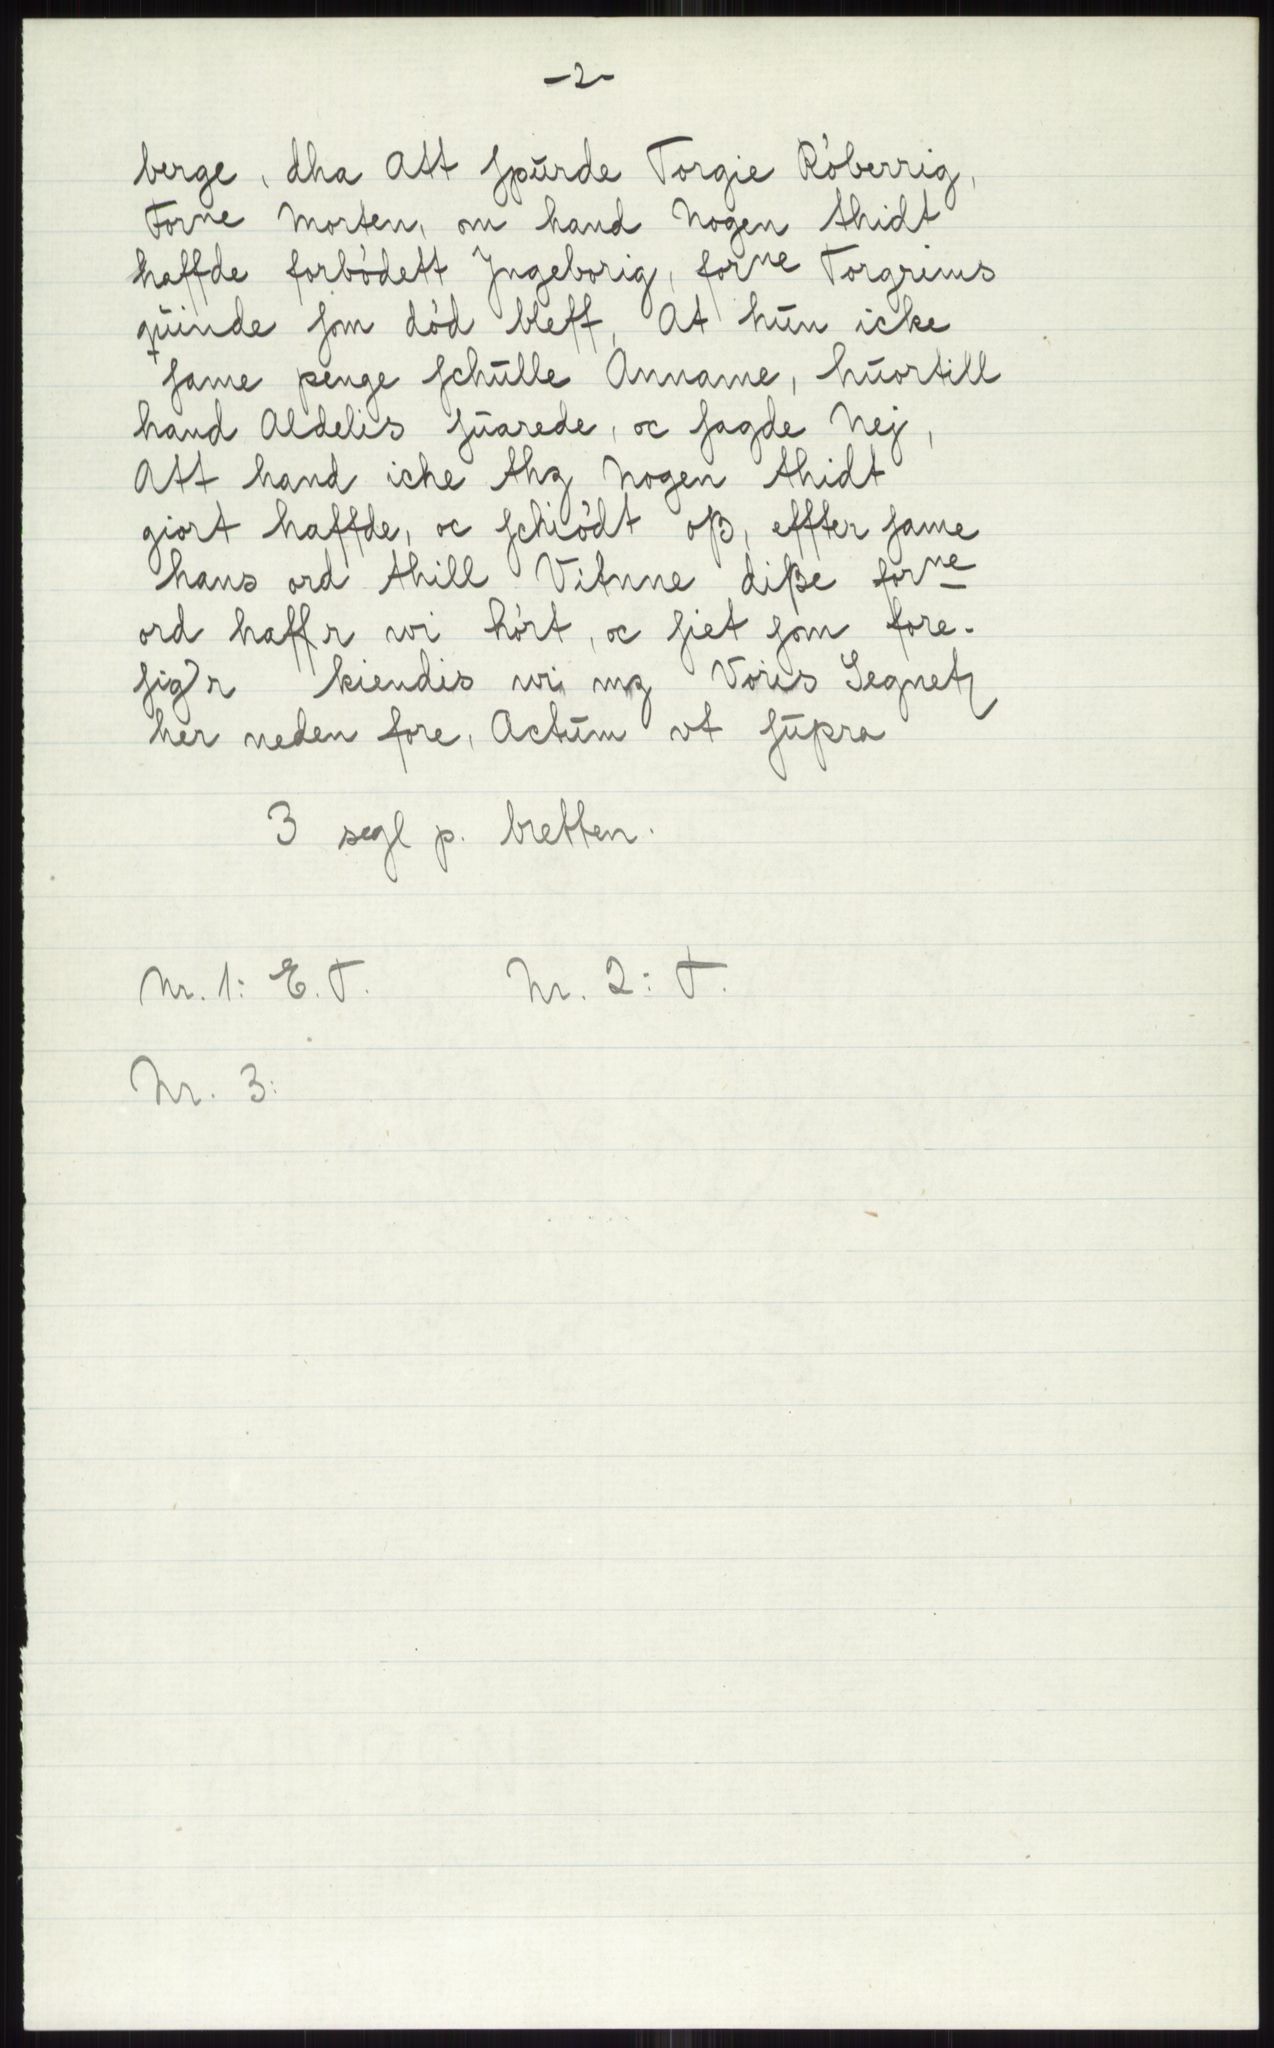 -2-
berge, dha Att spūrde Torgie Róberrig,
forne Morten, om hand Nogen thidt
haffde forbódett Jngeborig, forne Torgrims
qūinde som dód bleff, At hūn icke
same penge schūlle Anname, hūortill
hand Aldelis sūarede, oc sagde Nej,
Att hand iche thz Nogen thidt
giort haffde, oc schiódt oß, effter same
hans ord thill Vitnne diße forne
ord haffr wi hórt, oc siet som fore-
sigr kiendis wi mz Voris Segnetz
her neden fore, Actūm vt sūpra
3 segl p. bretten.
Nr. 1: E. T. Nr. 2: T.
Nr. 3: